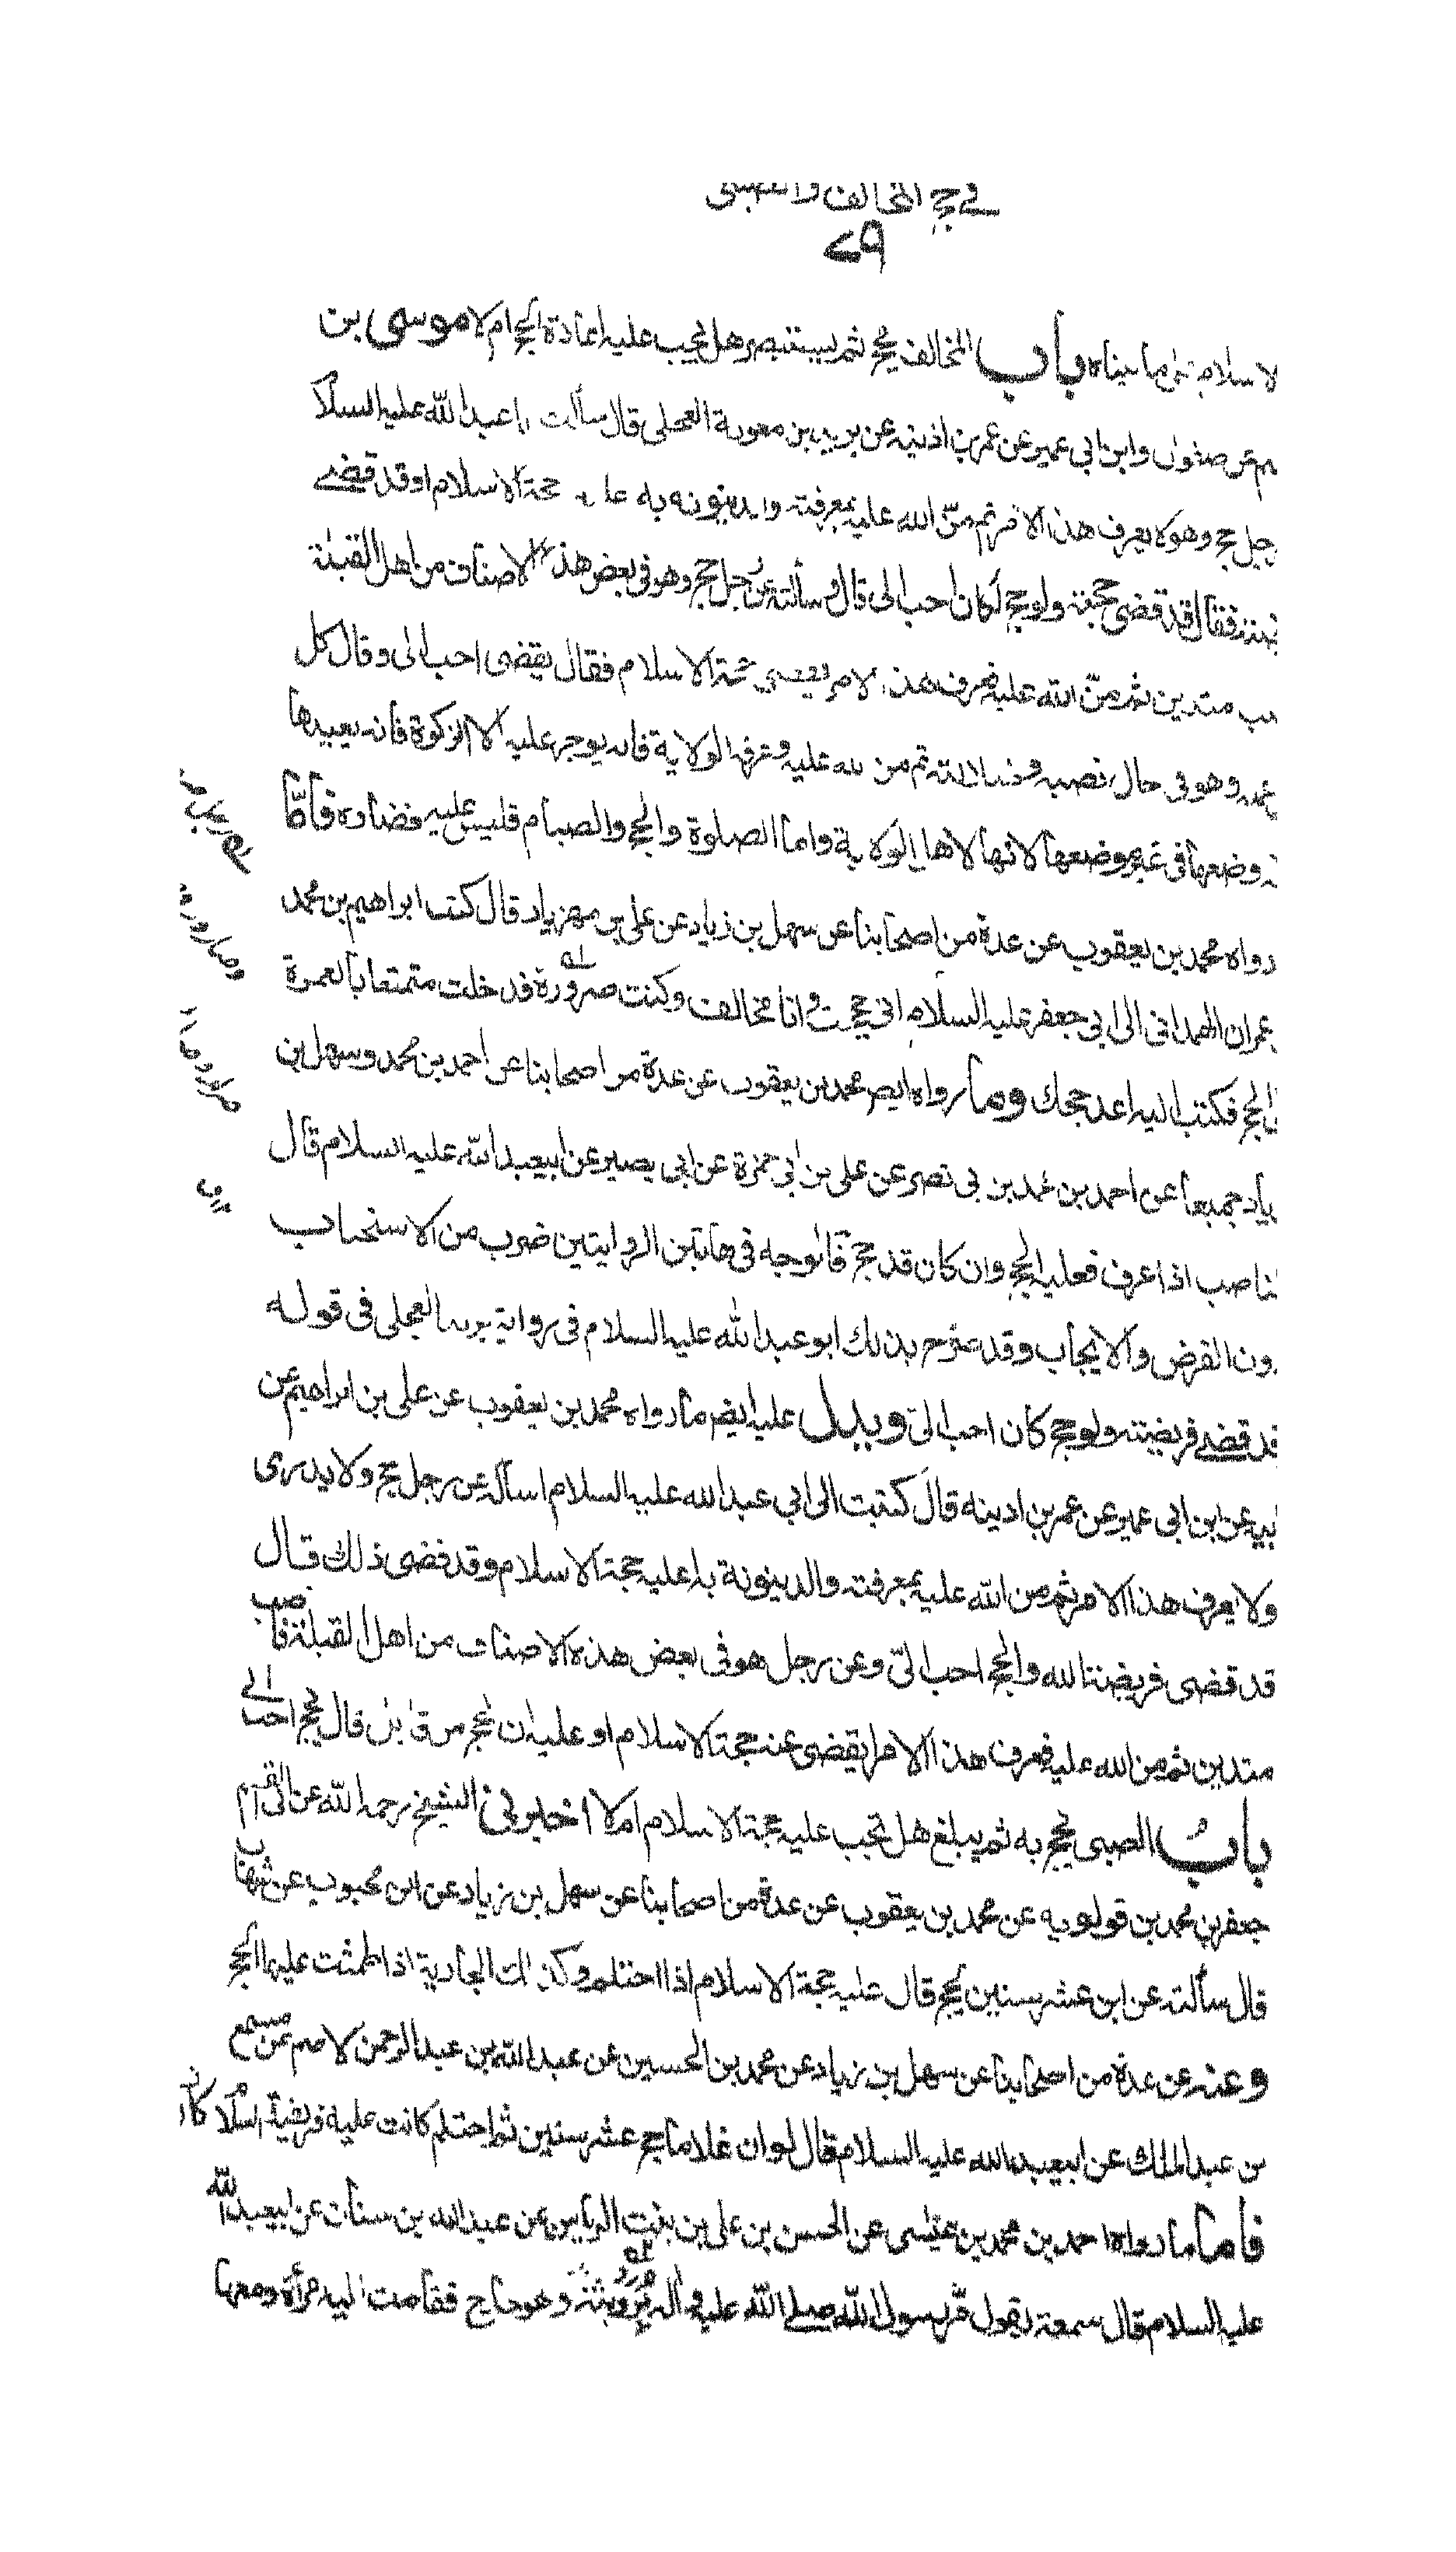 في حج المخالف والصبي
٧٩
لاسلام على ما بيناه باب المخالف يحج ثم يستبصر هل يجب عليه اعادة الحج ام لا موسى بن
عن صفوان وابن ابي عمير عن عمر بن اذينه عن بريد بن معوية العجلي قال سألت ابا عبد الله عليه السلام
رجل حج وهو لا يعرف هذا الامر ثم من الله عليه بمعرفته والدينونه به عليه حجة الاسلام او قد قضى
فقال قد قضى حجته ولو حج لكان احب الى قال وسألته عن رجل حج وهو في بعض هذه الاصناف من اهل القبلة
متدين ثم من الله عليه فعرف هذا الامر يقضى حجة الاسلام فقال يقضى احب الى وقال كل
وهو في حال نصبه وضلالته ثم من الله عليه وعرفه الولاية فانه يوجر عليه الا الزكوة فانه يعيدها
وضعها في غير موضعها لانها لاهل الولاية واما الصلوة والحج والصيام فليس عليه قضاؤه فأما
رواه محمد بن يعقوب عن عدة من اصحابنا عن سهل بن زياد عن على بن مهزياد قال كتب ابراهيم بن محمد
عمران الهمداني الى ابي جعفر عليه السلام اني حججت وانا مخالف وكنت صرورة فدخلت متمتعا بالعمرة
الحج فكتب اليه اعد حجك وما رواه ايضم محمد بن يعقوب عن عدة من اصحابنا عن احمد بن محمد وسهل بن
ياد جميعا عن احمد بن محمد بن بي نصر عن على بن ابي حمزة عن ابي بصير عن ابيعبد الله عليه السلام قال
لناصب اذا عرف فعليه الحج وان كان قد حج فالوجه في هاتين الروايتين ضرب من الاستحباب
دون الفرض والايجاب وقد صرح بذلك ابو عبد الله عليه السلام في رواية بريد العجلي في قوله
قد قضى فريضته ولو حج كان احب الىّ ويدل عليه ايضم ما رواه محمد بن يعقوب عن على بن ابراهيم عن
ابيه عن ابن ابي عمير عن عمر بن اذينه قال كتبت الى ابي عبد الله عليه السلام اسأله عن رجل حج ولا يدرى
ولا يعرف هذا الامر ثم من الله عليه بمعرفته والدينونة به اعليه حجة الاسلام وقد قضى ذلك قال
قد قضى فريضة الله والحج احب الىّ وعن رجل هو في بعض هذه الاصناف من اهل القبلة ناصب
متدين ثم من الله عليه فعرف هذا الامر ايقضى عنه حجة الاسلام او عليه ان يحج من قابل قال يحج احب الى
باب الصبى يحج به ثم يبلغ هل تجب عليه حجة الاسلام ام لا اخبرني الشيخ رحمه الله عن ابى القسم
جعفر بن محمد بن قولويه عن محمد بن يعقوب عن عدة من اصحابنا عن سهل بن زياد عن ابن محبوب عن شهاب
قال سألته عن ابن عشر سنين يحج قال عليه حجة الاسلام اذا احتلم وكذلك الجارية اذا طمثت عليها الحج
وعنه عن عدة من اصحابنا عن سهل بن زياد عن محمد بن الحسين عن عبد الله بن عبد الرحمن لاصم عن مسمع
بن عبد الملك عن ابيعبد الله عليه السلام قال لو ان غلاما حج عشر سنين ثم احتلم كانت عليه فريضة
فاما ما رواه احمد بن محمد بن عيسى عن الحسن بن على بن بنت الياس عن عبد الله بن سنان عن ابيعبد الله
عليه السلام قال سمعته يقول مر رسول الله صلى الله عليه وآله برويثة وهو حاج فقامت اليه امرأة ومعها